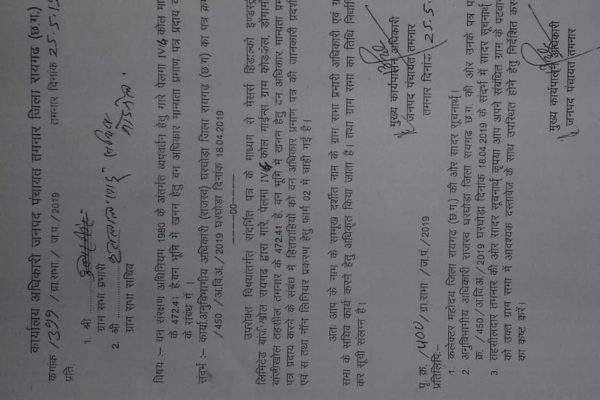 कार्यालय अधिकारी जनपद पंचायत तमनार जिला रायगढ (छ.ग.)
कमांक /1399 /ग्रा.सभा / ज.प. /2019 तमनार दिनांक 25.5.19
प्रति,
1. श्री
ग्राम सभा प्रभारी
2. श्री
ग्राम सभा सचिव
विषय :— वन संरक्षण अधिनियम 1980 के अंतर्गत व्यपवर्तन हेतु गारे पेलमा IV/6 कोल
के 472.41 हे.वन भूमि में खनन हेतु वन अधिकार मान्यता प्रमाण पत्र प्रदाय
के संबंध में ।
सदर्भ :— कार्या.अनुविभागीय अधिकारी (राजस्व) घरघोडा जिला रायगढ (छ.ग) का पत्र
/ 450 /अ.वि.अ. /2019 घरघोडा दिनांक 18.04.2019
-------00-------
उपरोक्त विषयांतर्गत संदर्भित पत्र के माध्यम से मेसर्स हिंडाल्को
लिमिटेड रायगढ द्वारा गारे, पेलमा IV/6 कोल माईन्स ग्राम कोडकेल,
तहसील तमनार के 472.41 हे. वन भूमि में खनन हेतु वन अधिकार मान्यता
पत्र प्रदाय करने के संबंध में हितग्राहियों को वन अधिकार प्रमाण पत्र की जानकारी
एवं नॉन लिनियर प्रकरण हेतु फार्म 02 में चाही गई है ।
अतः आप के नाम के सामुख दर्शाये नाम के ग्राम सभा प्रभारी अधिकारी एवं
सभा के सचिव कार्य करने हेतु अधिकृत किया जाता है । तथा ग्राम सभा का तिथि
कर सूची संलग्न है ।
मुख्य कार्यपालन अधिकारी
जनपद पंचायत तमनार
तमनार दिनांक 25.5.
पृ. क्र. /1400/ ग्रा.सभा / ज.पं / 2019
प्रतिलिपि:—
1. कलेक्टर महोदय जिला रायगढ (छ.ग.) की ओर सादर सूचनार्थ ।
2. अनुविभागीय अधिकारी राजस्व घरघोडा जिला रायगढ छ.ग. की ओर उनके पत्र
क्र. / 450 /अ.वि.अ. /2019 घरघोडा दिनांक 18.04.2019 के संदर्भ में सादर सूचनार्थ
3. तहसीलदार तमनार की ओर सादर सूचनार्थ कृपया आप अपने संबंधित ग्राम के
को उक्त ग्राम सभा में आवश्यक दस्तावेज के साथ उपस्थित होने हेतु निर्देशित
का कष्ट करें ।
मुख्य कार्यपालन अधिकारी
जनपद पंचायत तमनार